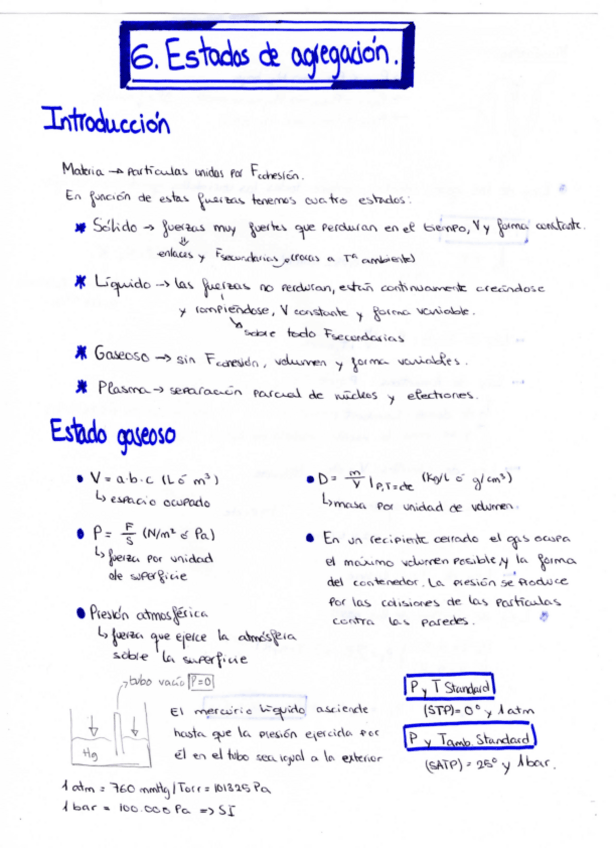 6. Estados de agregación.
Introducción
Materia → partículas unidas por Fcohesión.
En función de estas fuerzas tenemos cuatro estados:
* Sólido → fuerzas muy fuertes que perduran en el tiempo, V y forma constante.
⇓
enlaces y Fsecundarias (rocas a Tª ambiente)
* Líquido → las fuerzas no perduran, están continuamente creándose
y rompiéndose, V constante y forma variable.
↘ sobre todo Fsecundarias
* Gaseoso → sin Fcohesión, volumen y forma variables.
* Plasma → separación parcial de núcleos y electrones.
Estado gaseoso
• V = a·b·c (L ó m³)
↳ espacio ocupado
• P = F/S (N/m² ó Pa)
↳ fuerza por unidad
de superficie
• Presión atmosférica
↳ fuerza que ejerce la atmósfera
sobre la superficie
• D = m/V |P,T=cte (Kg/L ó g/cm³)
↳ masa por unidad de volumen.
• En un recipiente cerrado el gas ocupa
el máximo volumen posible, y la forma
del contenedor. La presión se produce
por las colisiones de las partículas
contra las paredes.
tubo vacío P=0
Hg
El mercurio líquido asciende
hasta que la presión ejercida por
él en el tubo sea igual a la exterior
P y T Standard
(STP) = 0° y 1 atm
P y Tamb. Standard
(SATP) = 25° y 1 bar.
1 atm = 760 mmHg/Torr = 101325 Pa
1 bar = 100.000 Pa => SI